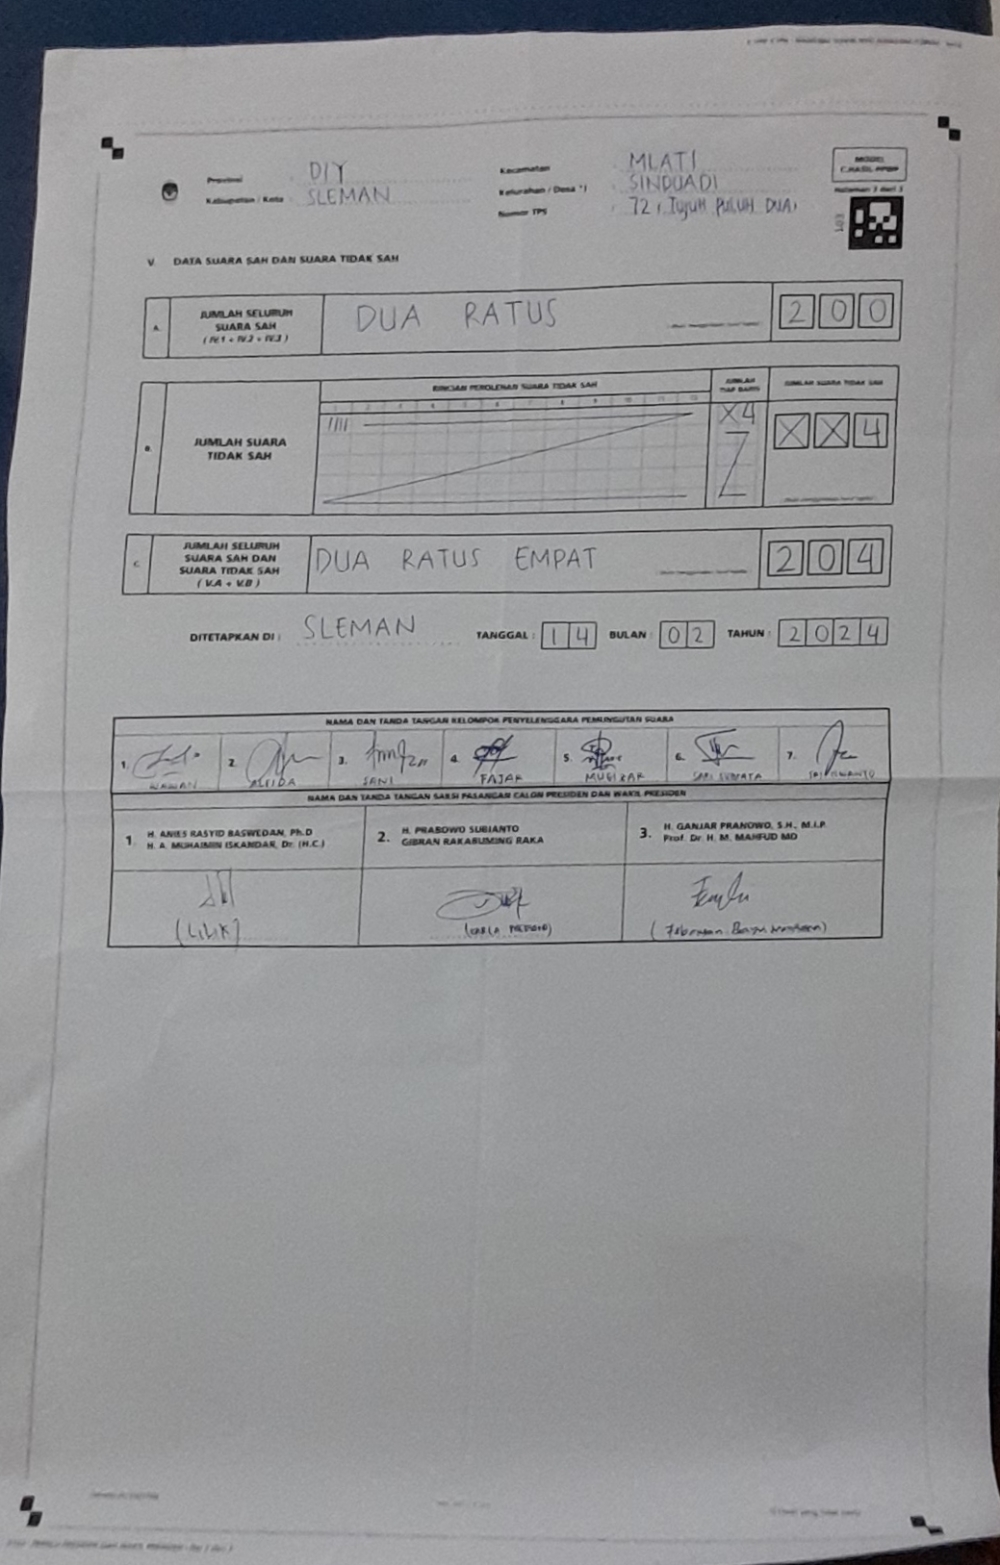 Provinsi : DIY
Kabupaten / Kota : SLEMAN
Kecamatan : MLATI
Kelurahan / Desa *) : SINDUADI
Nomor TPS : 72 (TUJUH PULUH DUA)
MODEL
C.HASIL-PPWP
Halaman 3 dari 3
V. DATA SUARA SAH DAN SUARA TIDAK SAH
A. JUMLAH SELURUH SUARA SAH (IV.1 + IV.2 + IV.3) DUA RATUS 2 0 0
RINCIAN PEROLEHAN SUARA TIDAK SAH
JUMLAH TIAP BARIS
JUMLAH SUARA TIDAK SAH
1 2 3 4 5 6 7 8 9 10 11 12
B. JUMLAH SUARA TIDAK SAH IIII X4 X X 4
C. JUMLAH SELURUH SUARA SAH DAN SUARA TIDAK SAH (V.A + V.B) DUA RATUS EMPAT 2 0 4
DITETAPKAN DI : SLEMAN TANGGAL : 1 4 BULAN : 0 2 TAHUN : 2 0 2 4
NAMA DAN TANDA TANGAN KELOMPOK PENYELENGGARA PEMUNGUTAN SUARA
1. 2. 3. 4. 5. 6. 7.
SANI FAJAR
NAMA DAN TANDA TANGAN SAKSI PASANGAN CALON PRESIDEN DAN WAKIL PRESIDEN
1. H. ANIES RASYID BASWEDAN, Ph.D
H. A. MUHAIMIN ISKANDAR, Dr. (H.C.)
2. H. PRABOWO SUBIANTO
GIBRAN RAKABUMING RAKA
3. H. GANJAR PRANOWO, S.H., M.I.P.
Prof. Dr. H. M. MAHFUD MD
(LILIK)